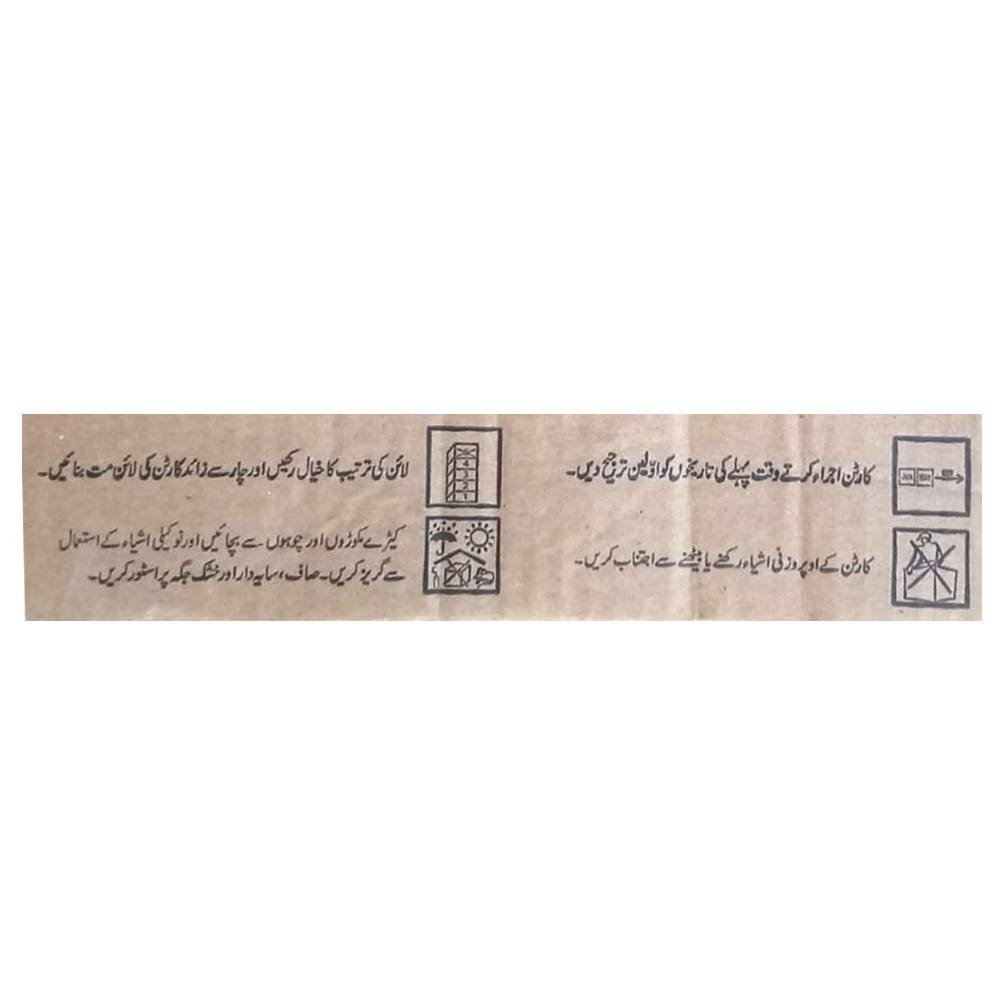 کارٹن اجراء کرتے وقت پہلے کی تاریخوں کو اوّلین ترجیح دیں۔
کارٹن کے اوپر وزنی اشیاء رکھنے یا بیٹھنے سے اجتناب کریں۔
لائن کی ترتیب کا خیال رکھیں اور چار سے زائد کارٹن کی لائن مت بنائیں۔
4
3
2
1
کیڑے مکوڑوں اور چوہوں سے بچائیں اور نوکیلی اشیاء کے استعمال
سے گریز کریں۔ صاف، سایہ دار اور خشک جگہ پر اسٹور کریں۔